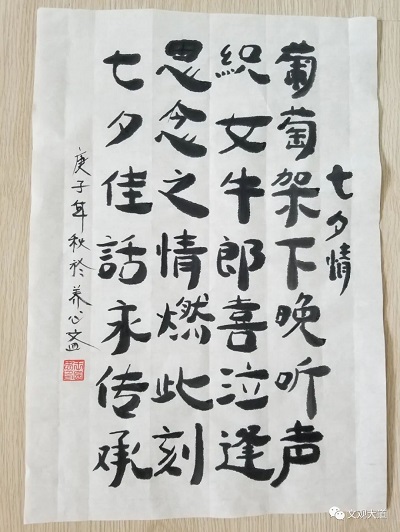 七夕情
葡萄架下晚听声
织女牛郎喜泣逢
思念之情燃此刻
七夕佳話永传承
庚子年秋於养心斋